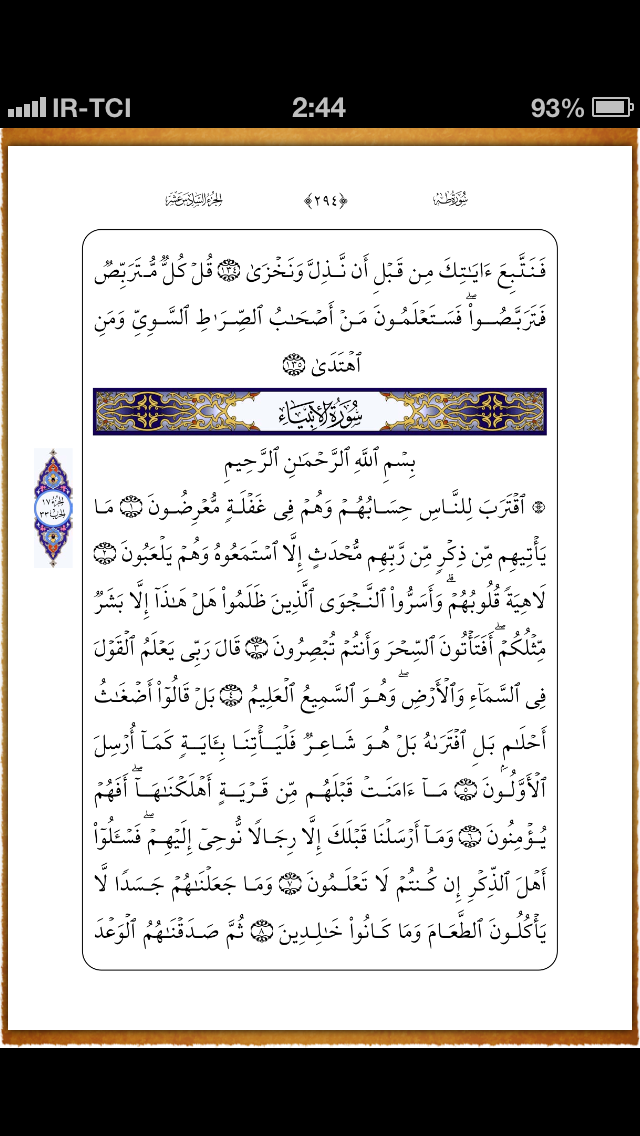 IR-TCI 2:44 93%
سُورَةُ طه ﴿٢٩٤﴾ الجُزْءُ السَّادِسَ عَشَرَ
فَنَتَّبِعَ ءَايَـٰتِكَ مِن قَبْلِ أَن نَّذِلَّ وَنَخْزَىٰ ١٣٤ قُلْ كُلٌّ مُّتَرَبِّصٌ
فَتَرَبَّصُوا۟ ۖ فَسَتَعْلَمُونَ مَنْ أَصْحَـٰبُ ٱلصِّرَٰطِ ٱلسَّوِىِّ وَمَنِ
ٱهْتَدَىٰ ١٣٥
سُورَةُ الأَنْبِيَاءِ
بِسْمِ ٱللَّهِ ٱلرَّحْمَـٰنِ ٱلرَّحِيمِ
۞ ٱقْتَرَبَ لِلنَّاسِ حِسَابُهُمْ وَهُمْ فِى غَفْلَةٍ مُّعْرِضُونَ ١ مَا
الجزء ١٧
الحزب ٣٣
يَأْتِيهِم مِّن ذِكْرٍ مِّن رَّبِّهِم مُّحْدَثٍ إِلَّا ٱسْتَمَعُوهُ وَهُمْ يَلْعَبُونَ ٢
لَاهِيَةً قُلُوبُهُمْ ۗ وَأَسَرُّوا۟ ٱلنَّجْوَى ٱلَّذِينَ ظَلَمُوا۟ هَلْ هَـٰذَآ إِلَّا بَشَرٌ
مِّثْلُكُمْ ۖ أَفَتَأْتُونَ ٱلسِّحْرَ وَأَنتُمْ تُبْصِرُونَ ٣ قَالَ رَبِّى يَعْلَمُ ٱلْقَوْلَ
فِى ٱلسَّمَآءِ وَٱلْأَرْضِ ۖ وَهُوَ ٱلسَّمِيعُ ٱلْعَلِيمُ ٤ بَلْ قَالُوٓا۟ أَضْغَـٰثُ
أَحْلَـٰمٍ بَلِ ٱفْتَرَىٰهُ بَلْ هُوَ شَاعِرٌ فَلْيَأْتِنَا بِـَٔايَةٍ كَمَآ أُرْسِلَ
ٱلْأَوَّلُونَ ٥ مَآ ءَامَنَتْ قَبْلَهُم مِّن قَرْيَةٍ أَهْلَكْنَـٰهَآ ۖ أَفَهُمْ
يُؤْمِنُونَ ٦ وَمَآ أَرْسَلْنَا قَبْلَكَ إِلَّا رِجَالًا نُّوحِىٓ إِلَيْهِمْ ۖ فَسْـَٔلُوٓا۟
أَهْلَ ٱلذِّكْرِ إِن كُنتُمْ لَا تَعْلَمُونَ ٧ وَمَا جَعَلْنَـٰهُمْ جَسَدًا لَّا
يَأْكُلُونَ ٱلطَّعَامَ وَمَا كَانُوا۟ خَـٰلِدِينَ ٨ ثُمَّ صَدَقْنَـٰهُمُ ٱلْوَعْدَ